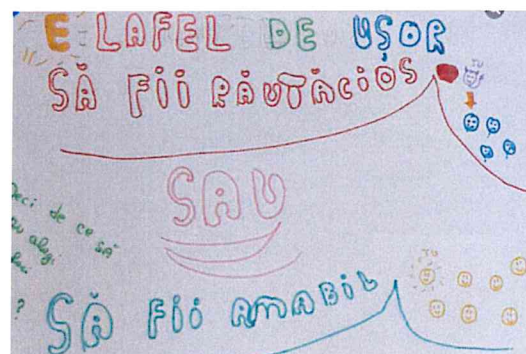 E LAFEL DE UȘOR
SĂ FII RĂUTĂCIOS
TU
SAU
Deci de ce să
nu alegi
?
TU
SĂ FII AMABIL